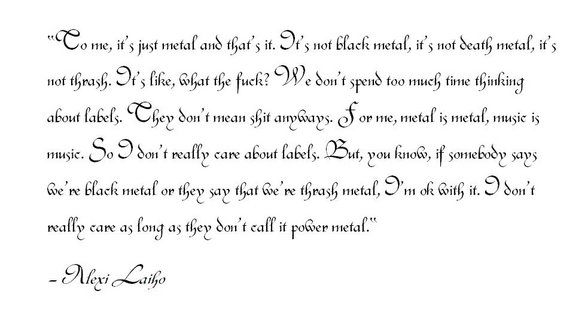 "To me, it's just metal and that's it. It's not black metal, it's not death metal, it's
not thrash. It's like, what the fuck? We don't spend too much time thinking
about labels. They don't mean shit anyways. For me, metal is metal, music is
music. So I don't really care about labels. But, you know, if somebody says
we're black metal or they say that we're thrash metal, I'm ok with it. I don't
really care as long as they don't call it power metal."
- Alexi Laiho